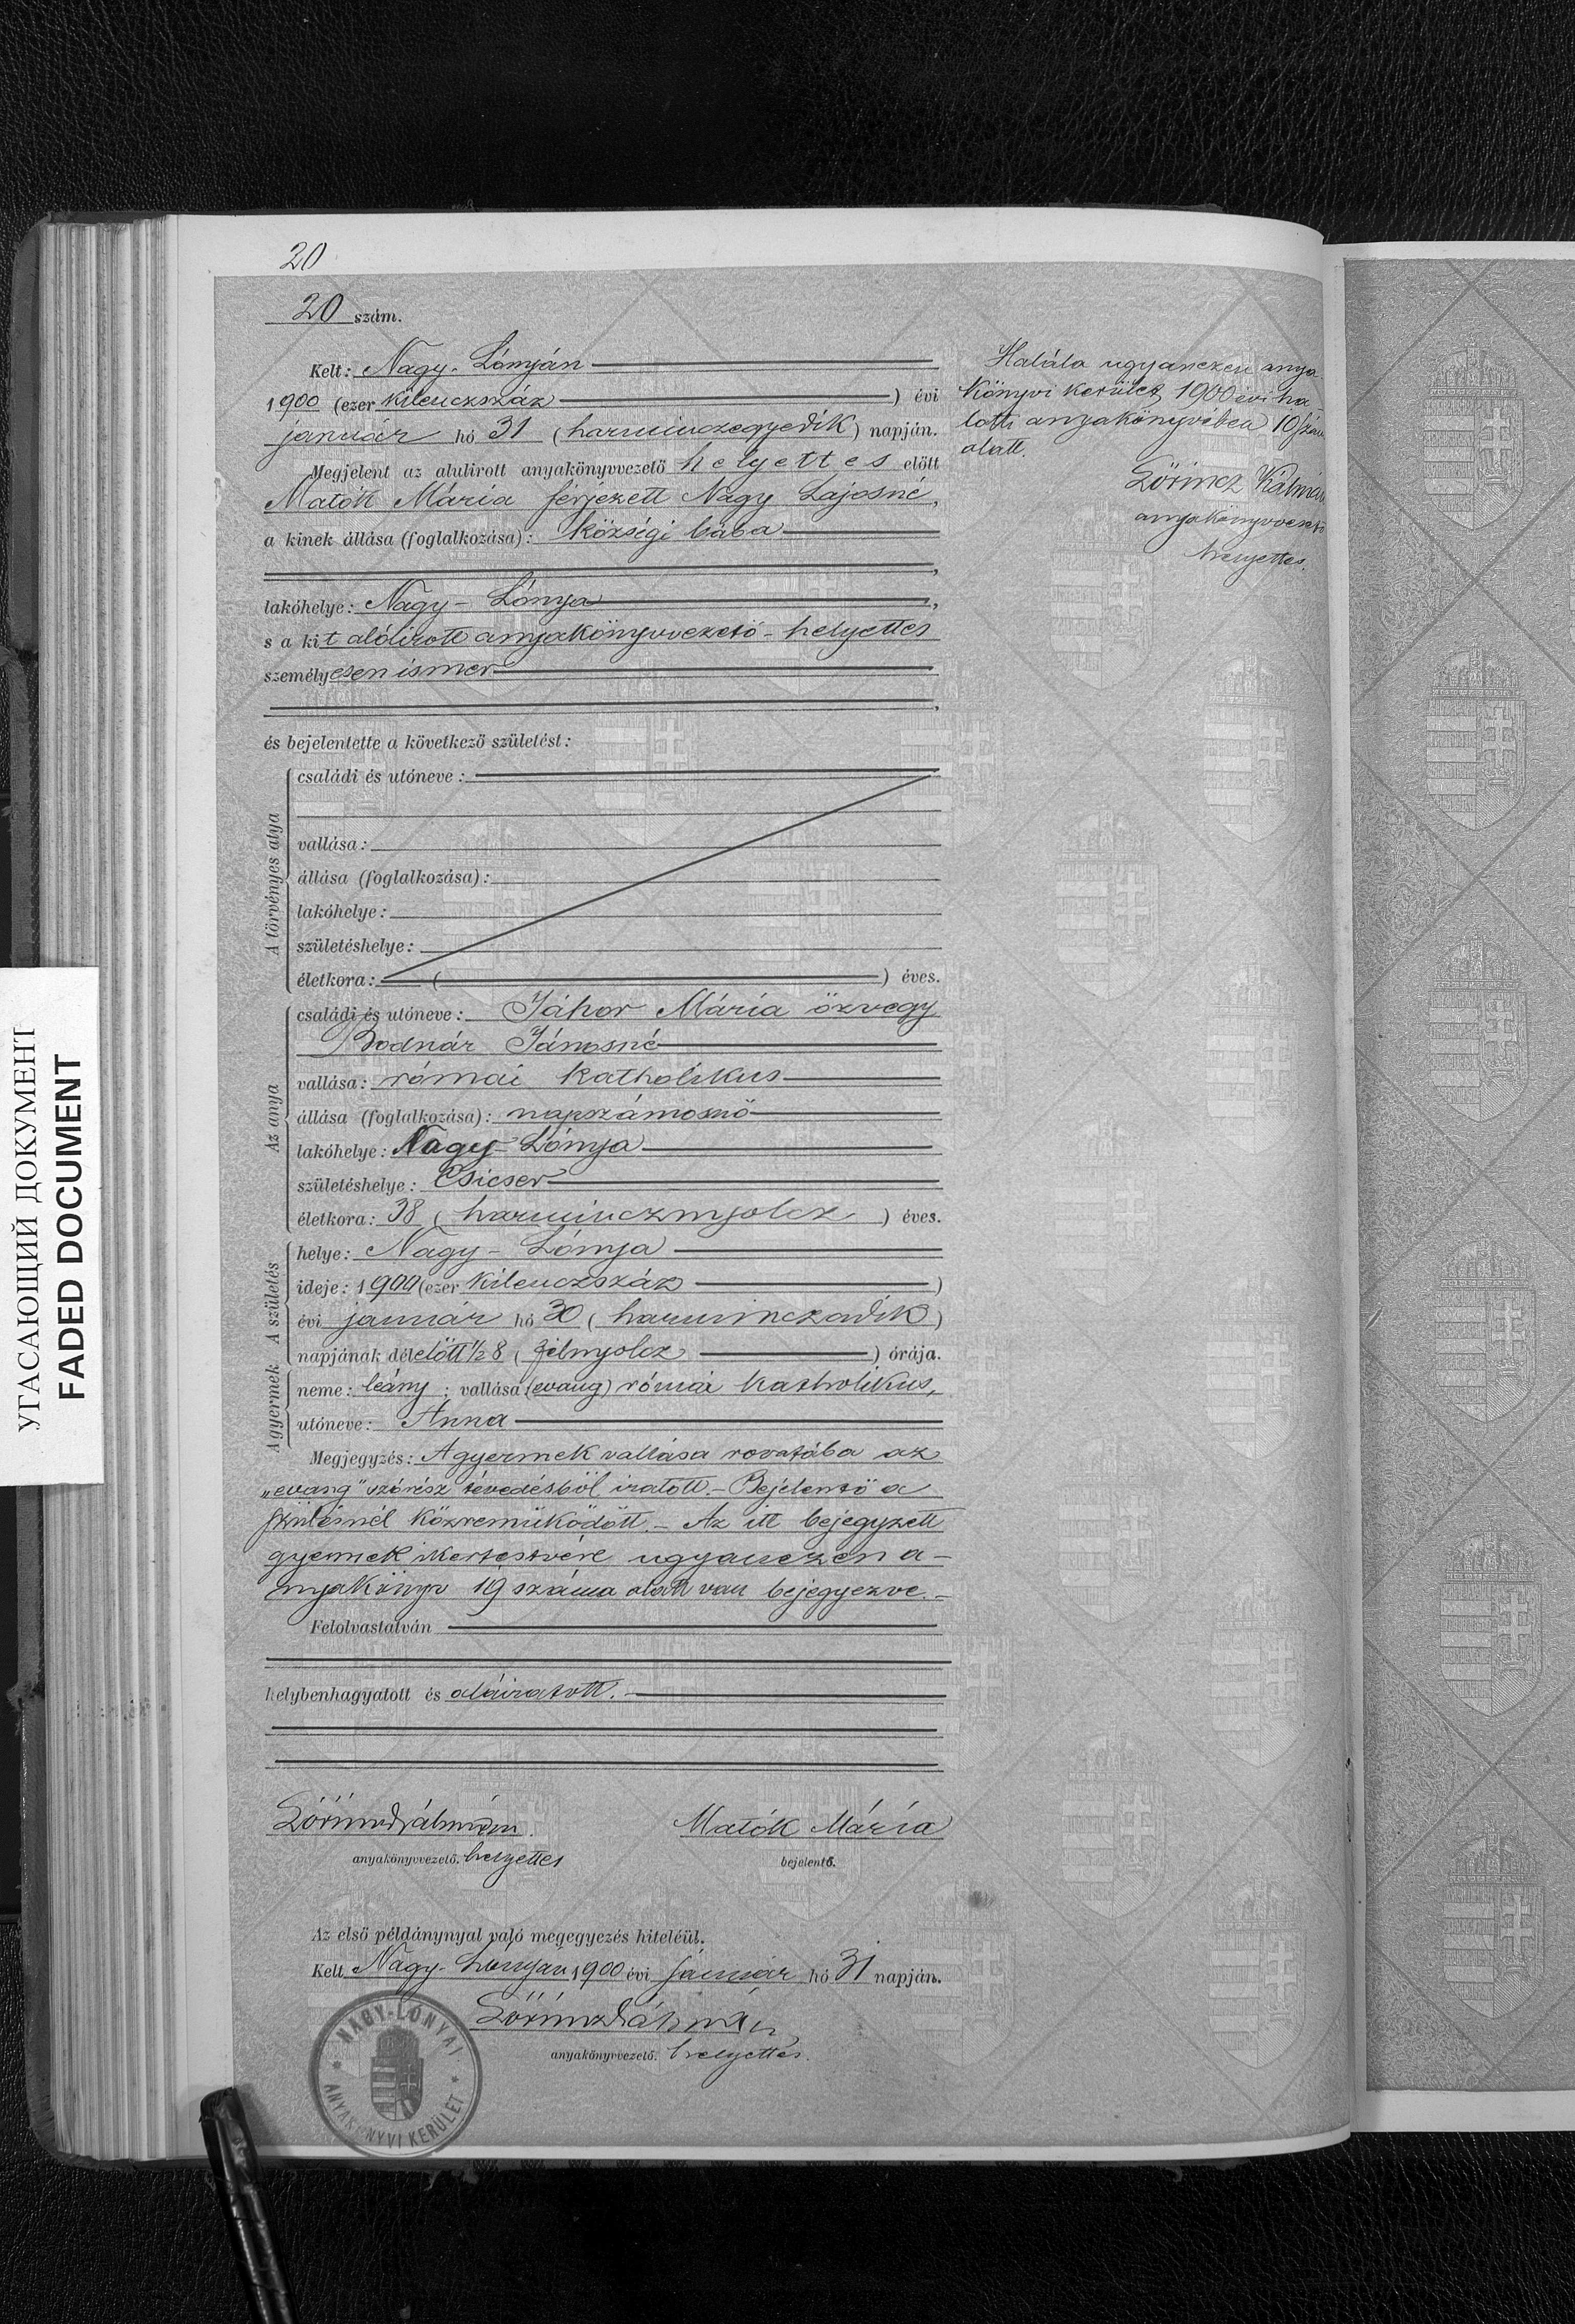 20
20 szám.
Kelt: Nagy-Lónyán
1900 (ezer kilenczszáz) évi
január hó 31 (harminczegyedik) napján.
Megjelent az alulirott anyakönyvvezető helyettes előtt
Matók Mária férjezett Nagy Lajosné,
a kinek állása (foglalkozása): községi bába
lakóhelye: Nagy-Lónya,
s a kit alólirott anyakönyvvezető-helyettes
személyesen ismer
és bejelentette a következő születést:
A törvényes atya
családi és utóneve:
vallása:
állása (foglalkozása):
lakóhelye:
születéshelye:
életkora: ( ) éves.
Az anya
családi és utóneve: Jáhor Mária özvegy
Bodnár Jánosné
vallása: római katholikus
állása (foglalkozása): napszámosnő
lakóhelye: Nagy-Lónya
születéshelye: Csicser
életkora: 38 (harmincznyolcz) éves.
A születés
helye: Nagy-Lónya
ideje: 1900 (ezer kilenczszáz)
évi január hó 30 (harminczadik)
napjának délelőtt 1/2 8 (félnyolcz) órája.
A gyermek
neme: leány; vallása: (evang) római katholikus,
utóneve: Anna
Megjegyzés: A gyermek vallása rovatába az
„evang" szórész tévedésből iratott.- Bejelentő a
szülésnél közreműködött.- Az itt bejegyzett
gyermek ikertestvére ugyanezen a-
nyakönyv 19 száma alatt van bejegyezve.-
Felolvastatván
helybenhagyatott és aláiratott.
Lőrincz Kálmán
anyakönyvvezető. helyettes
Matók Mária
bejelentő.
Az első példánynyal való megegyezés hiteléül.
Kelt Nagy-Lónyán 1900 évi január hó 31 napján.
Lőrincz Kálmán
anyakönyvvezető. helyettes.
NAGY-LÓNYAI
ANYAKÖNYVI KERÜLET
Halála ugyanezen anya
könyvi kerület 1900 évi ha
lotti anyakönyvében 10 szám
alatt.
Lőrincz Kálmán
anyakönyvvezető
helyettes.
УГАСАЮЩИЙ ДОКУМЕНТ
FADED DOCUMENT